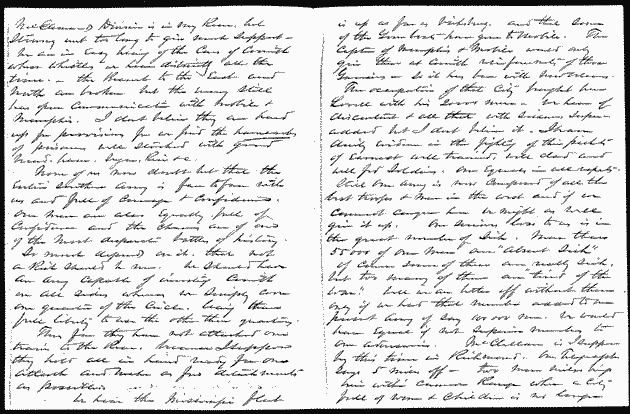 McClernand's Division is in my Rear, but
strong but too long to give much support -
We are in easy hearing of the Cars of Corinth
whose whistles we hear distinctly all the
time. - the Railroad to the East and
North are broken but the enemy still
has open Communication with Mobile &
Memphis. I dont believe they are hard
up for provisions for we find the haversacks
of prisoners well stocked with good
bread, ham, Sugar, Rice &c.
None of us now doubt but that the
entire Southern Army is face to face with
us and full of Courage & Confidence.
Our men are also equally full of
Confidence and the chances are of one
of the most desperate battles of history.
So much depends on it, that not
a Risk should be run. We should have
an army capable of investing Corinth
on all sides whereas we simply cover
one quarter of the Circle, leaving them
full liberty to use the other three quarters.
Thus far they have not attacked our
trains to the River because I suppose
they hold all in hand ready for our
attack and make as few detachments
as possible.
We have the Mississippi Fleet
is up as far as Vicksburg, and that some
of the Gun boats have gone to Mobile. The
Capture of Memphis & Mobile would only
give them at Corinth reinforcements of those
Garrisons - So it has been with New Orleans.
The occupation of that City brought here
Lovell with his men - We hear of
discontent & all that with
added but I dont believe it. I have
daily evidence in the fighting of their pickets
of Earnest well trained, well clad and
well fed Soldiers. Our Equals in all respects.
Still our army is now Composed of all the
best troops & men in the west and if we
cannot conquer here we might as well
give it up. Our serious loss to us is in
the great number of Sick. More than
55000 of our men are "absent Sick"
of course some of them are really sick,
but too many of them are "tired of the
war". We are better off without them
only if we had that number added to our
present army of say 100.000 men we would
have equal if not superior numbers to
our adversaries. McClellan is I suppose
by this time in Richmond. Our telegraph
says 5 miles off - two more miles bring
him within Cannon Range when a City
full of women & Children is no longer